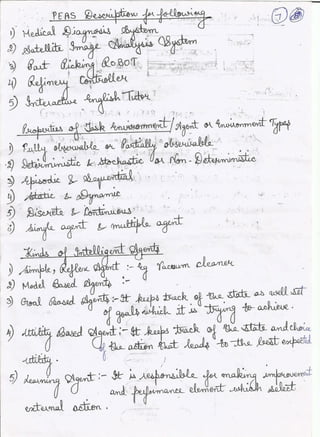 PEAS Description for following
7
1) Medical Diagnosis System
2) Satellite Image Analysis System
3) Part Picking ROBOT
4) Refinery Controller
5) Interactive English Tutor
Properties of Task Environment / Agent or Environment Types
1) Fully observable or Partially observable
2) Deterministic & Stochastic or Non-Deterministic
3) Episodic & Sequential
4) Static & Dynamic
5) Discrete & Continuous
6) Single agent & multiple agent
Kinds of Intelligent Agents
1) Simple, Reflex Agent :- Eg Vacuum cleaner
2) Model Based Agents :-
3) Goal Based Agents :- It keeps track of the state as well set
of goals which it is trying to achieve.
4) Utility Based Agent :- It keeps track of the state and choice
of the action that leads to the best expected
utility.
5) Learning Agent :- It is responsible for making improvement
and performance element which select
external action.